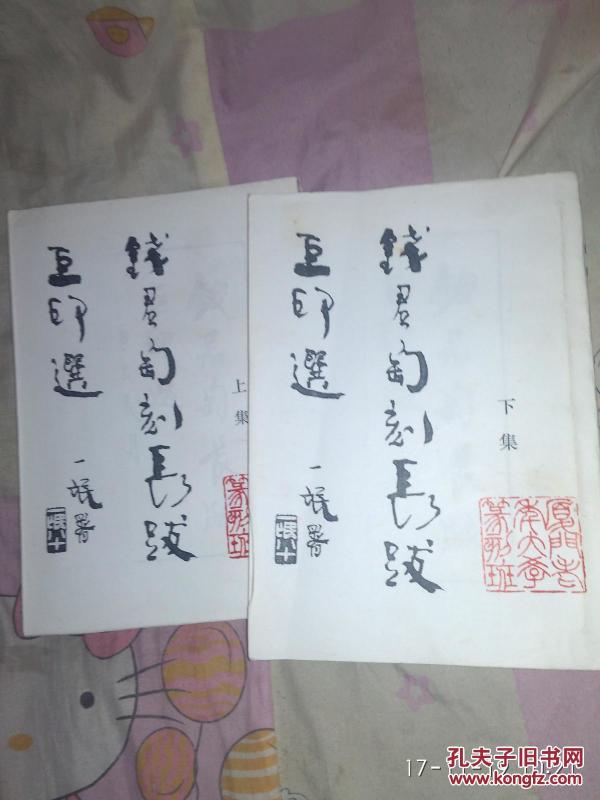 上集
錢君匋刻長跋
巨印選
一氓署
篆刻班
下集
錢君匋刻長跋
巨印選
一氓署
廈門老
年大學
篆刻班
孔夫子旧书网
www.kongfz.com